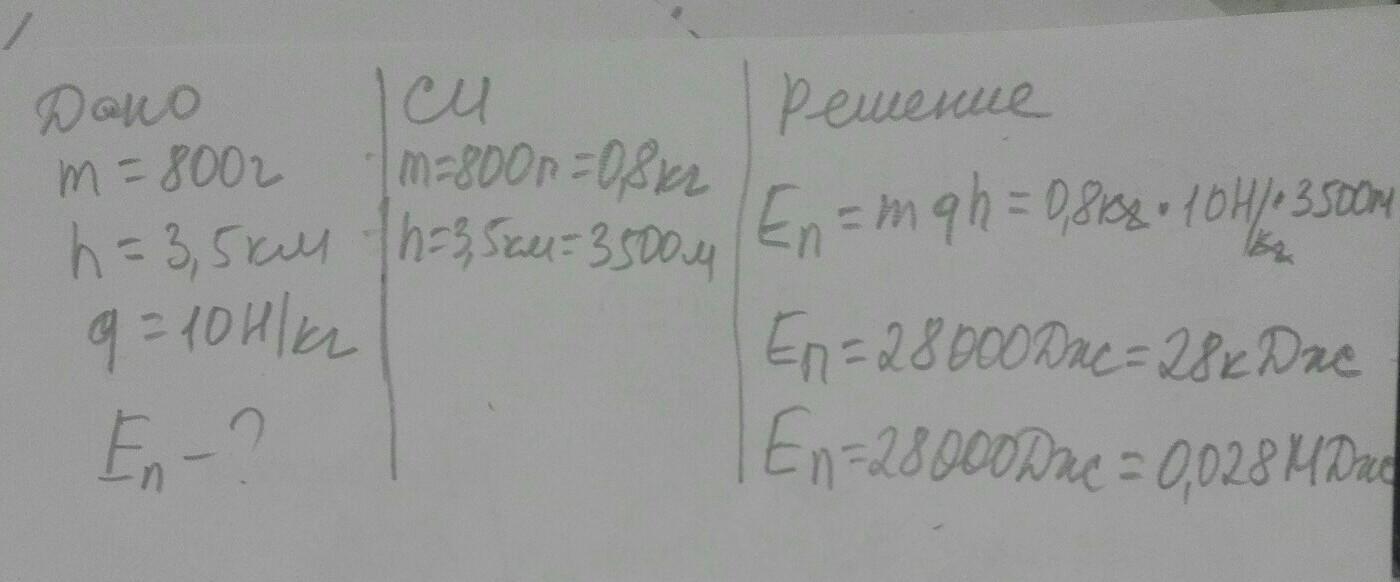 Дано
m = 800г
h = 3,5км
g = 10Н/кг
Eп - ?
СИ
m=800г=0,8кг
h=3,5км=3500м
Решение
Eп = mgh = 0,8кг · 10Н/кг · 3500м
Eп = 28000Дж = 28кДж
Eп = 28000Дж = 0,028МДж